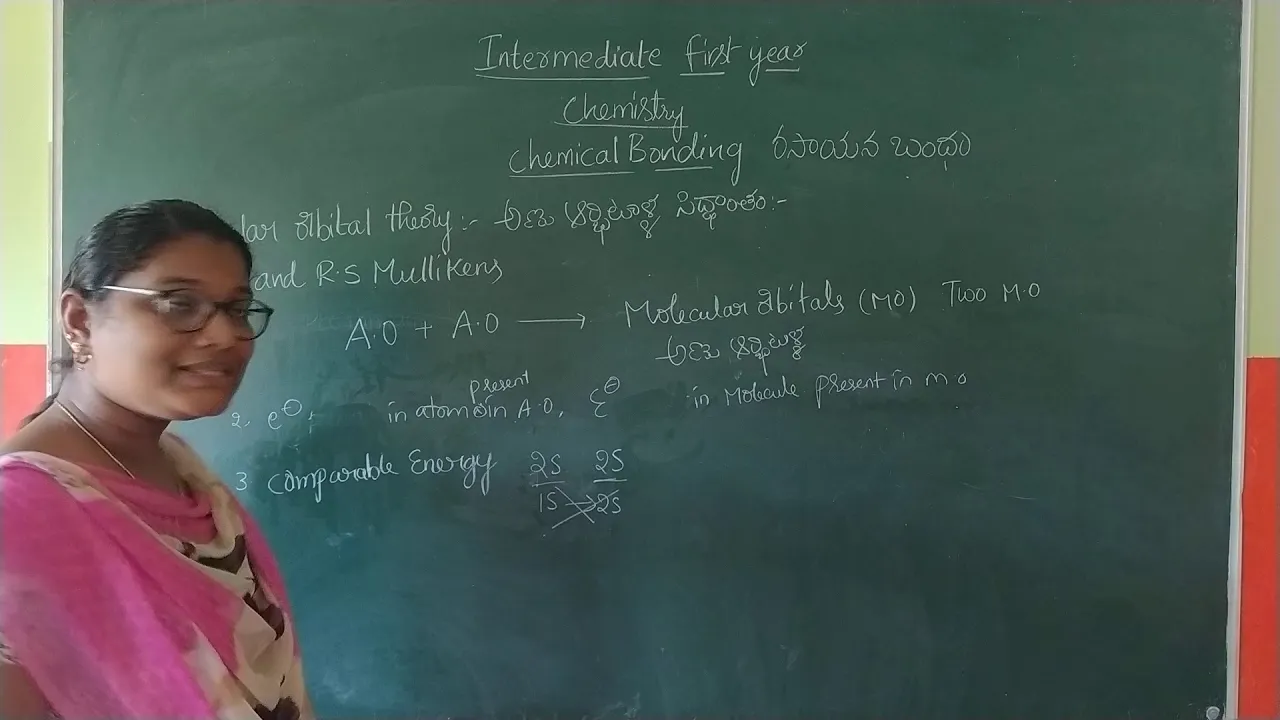 Intermediate first year
Chemistry
Chemical Bonding రసాయన బంధం
lar orbital theory:- అణు ఆర్బిటాళ్ళ సిద్ధాంతం:-
and R.S Mullikens
A.O + A.O ⟶ Molecular orbitals (MO) Two M.O
అణు ఆర్బిటాళ్ళ
present
2. e⊖, in atom in A.O, e⊖ in Molecule present in m o
3 Comparable Energy 2S 2S
1S → 2S